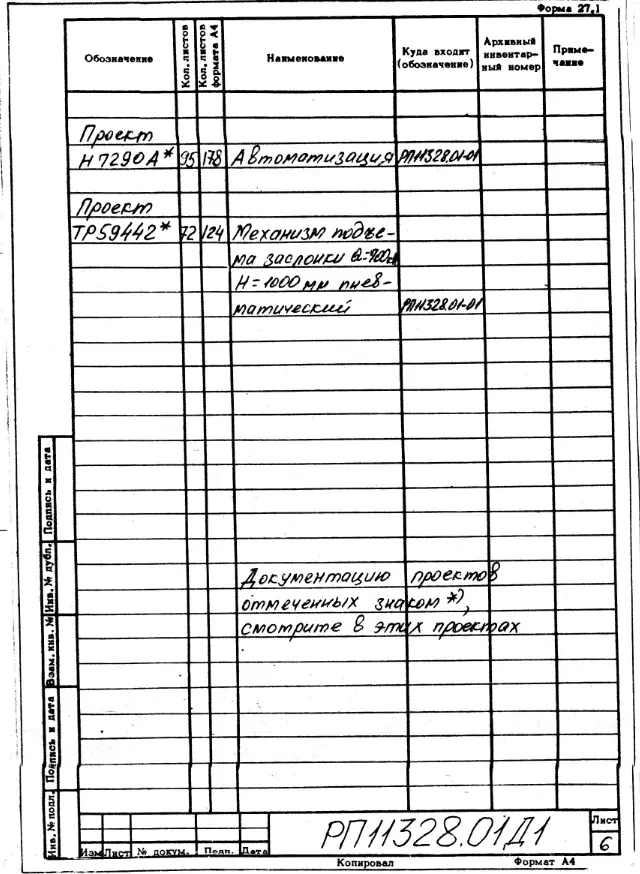 Форма 27.1
Обозначение
Кол. листов
Кол. листов формата А4
Наименование
Куда входит (обозначение)
Архивный инвентарный номер
Примечание
Проект
Н7290А* 95 178 Автоматизация РП11328.01-01
Проект
ТР59442* 72 124 Механизм подъе-
ма заслонки
Н=1000 мм пнев-
матический РП11328.01-01
Документацию проектов
отмеченных знаком *),
смотрите в этих проектах
Инв. № подл.
Подпись и дата
Взам. инв. №
Инв. № дубл.
Подпись и дата
Изм Лист № докум. Подп. Дата
РП11328.01Д1
Лист
6
Копировал Формат А4